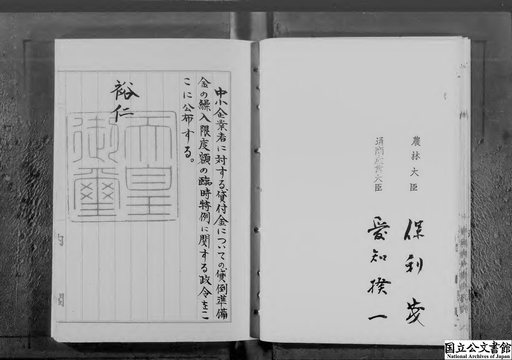 農林大臣
保利茂
通商産業大臣
愛知揆一
中小企業者に対する貸付金についての貸倒準備
金の繰入限度額の臨時特例に関する政令をこ
こに公布する。
裕仁
天皇
御璽
国立公文書館
National Archives of Japan